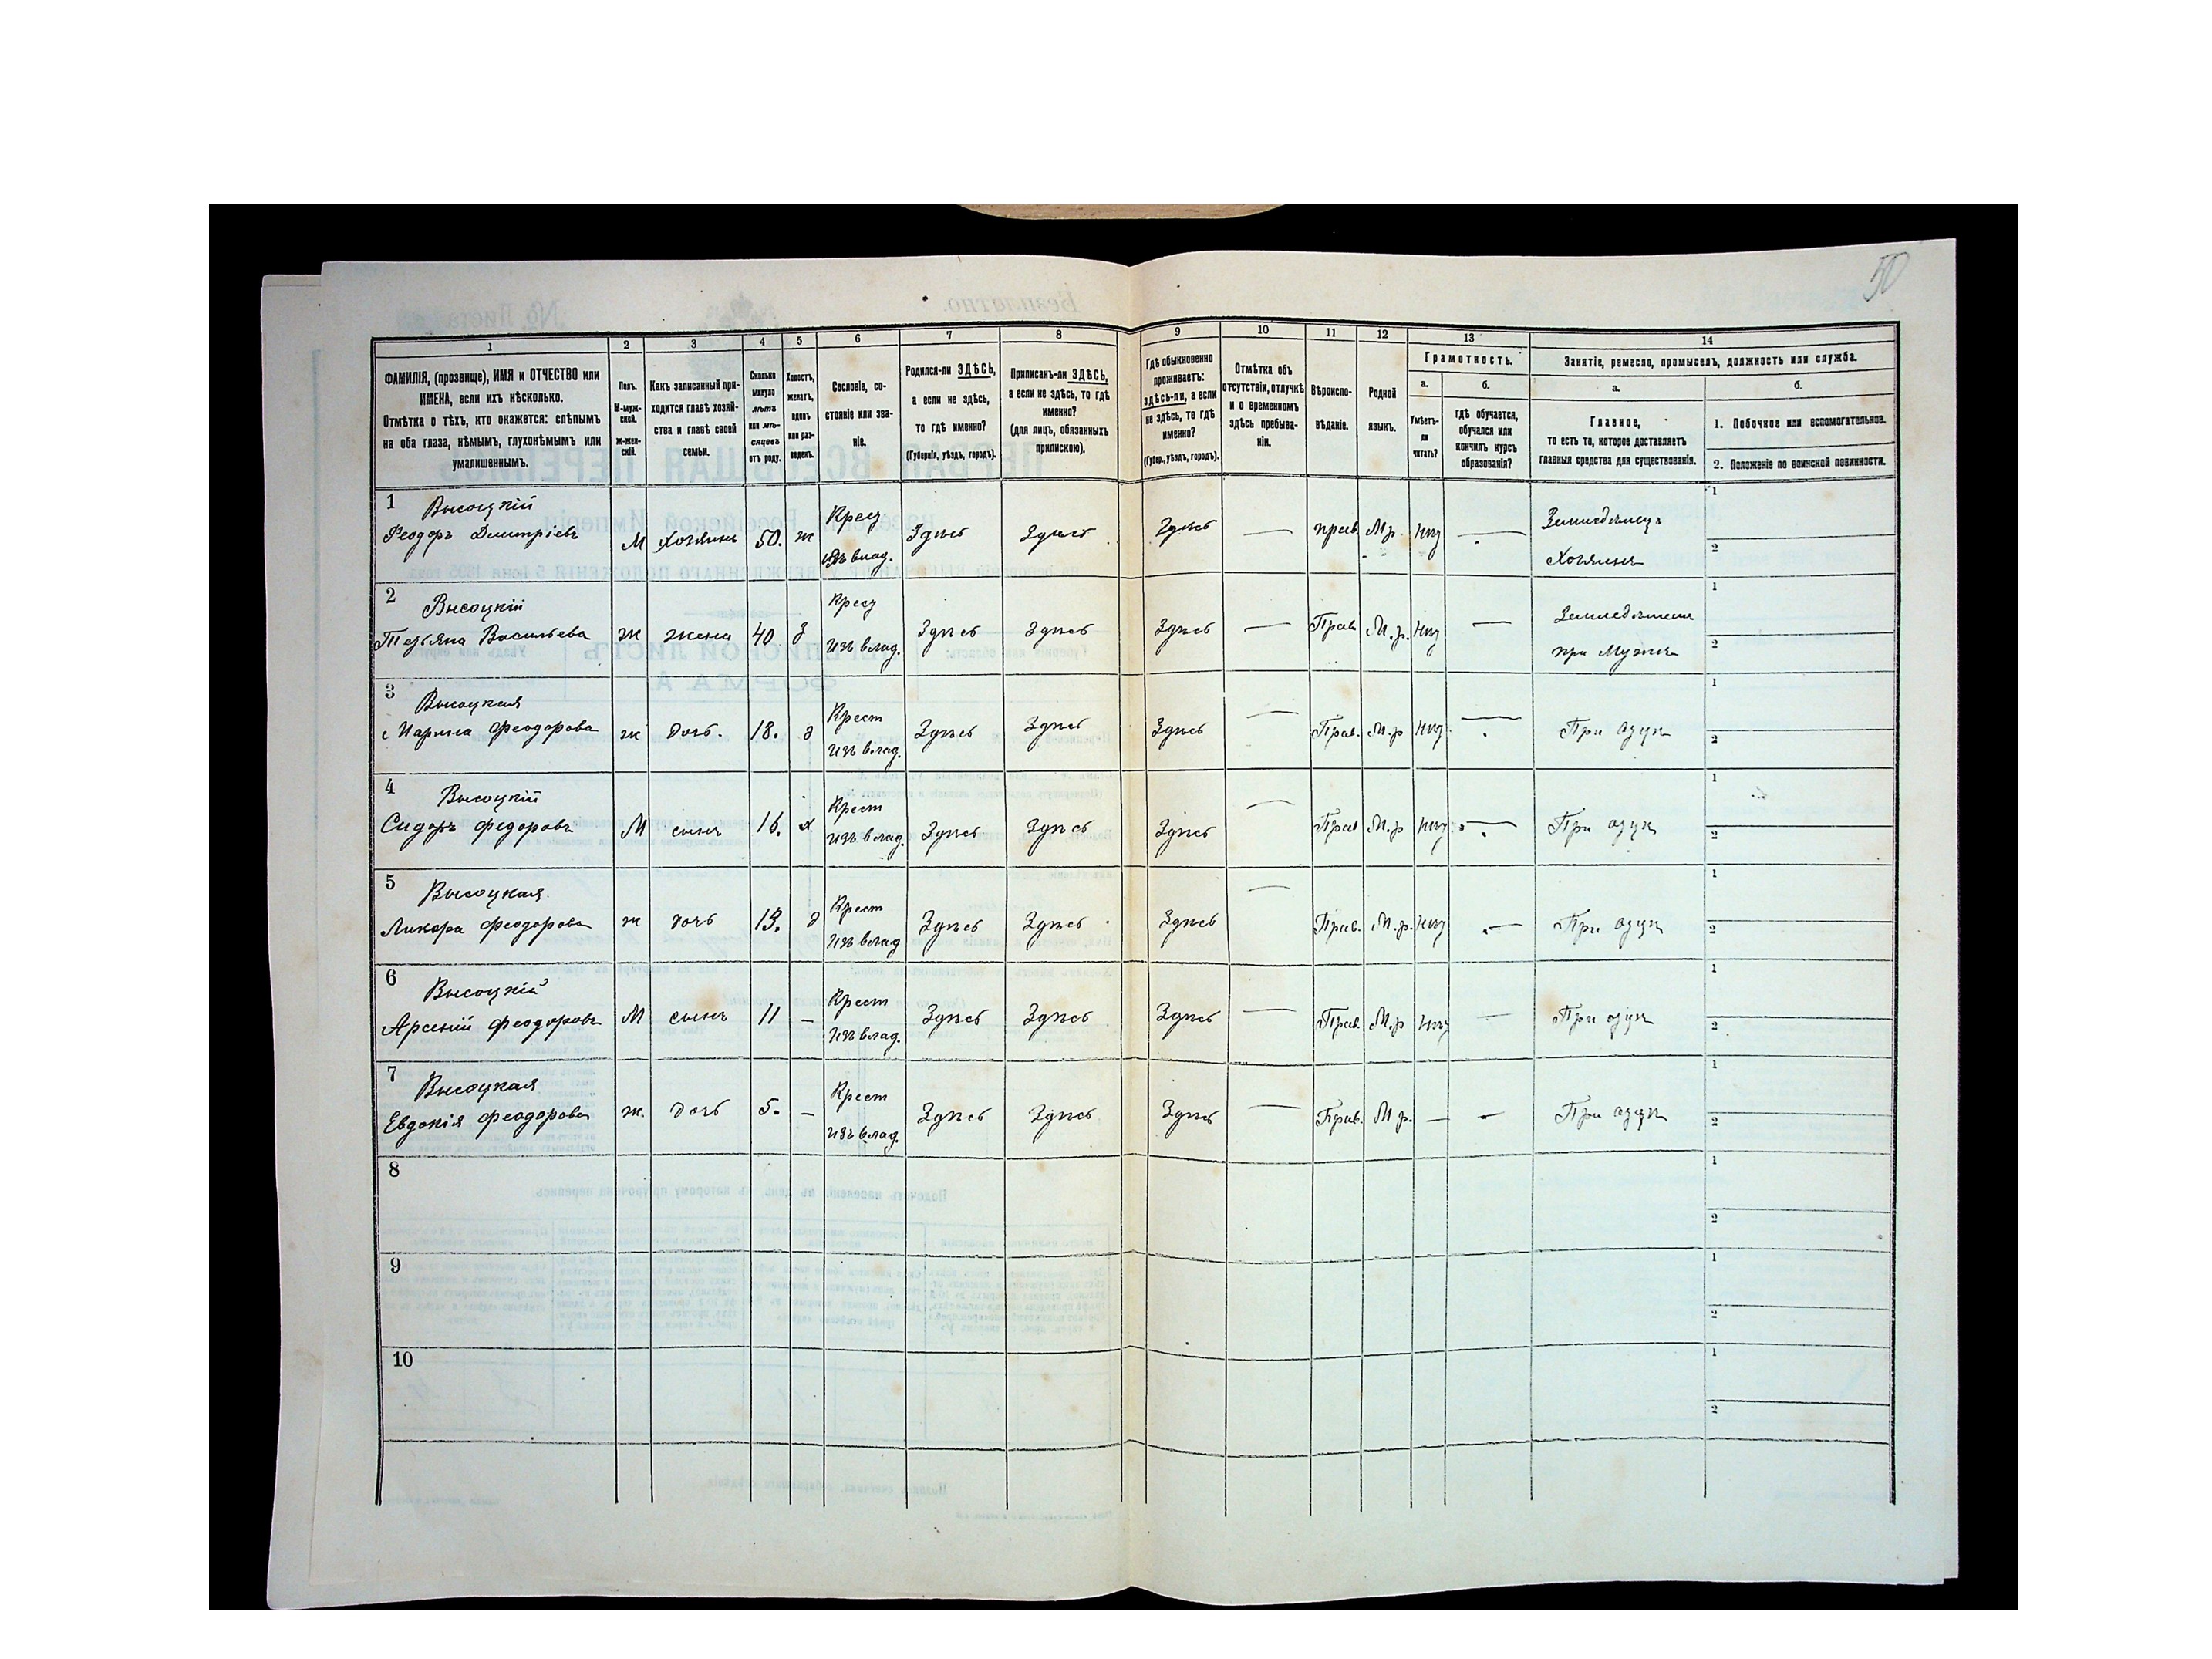 50
1 2 3 4 5 6 7 8 9 10 11 12 13 14
ФАМИЛІЯ, (прозвище), ИМЯ и ОТЧЕСТВО или ИМЕНА, если ихъ нѣсколько.
Отмѣтка о тѣхъ, кто окажется: слѣпымъ на оба глаза, нѣмымъ, глухонѣмымъ или умалишеннымъ.
Полъ. М-мужской. Ж-женскій.
Какъ записанный приходится главѣ хозяйства и главѣ своей семьи.
Сколько минуло лѣтъ или мѣсяцевъ отъ роду.
Холостъ, женатъ, вдовъ или разведенъ.
Сословіе, состояніе или званіе.
Родился-ли ЗДѢСЬ, а если не здѣсь, то гдѣ именно?
(Губернія, уѣздъ, городъ).
Приписанъ-ли ЗДѢСЬ, а если не здѣсь, то гдѣ именно?
(для лицъ, обязанныхъ припискою).
Гдѣ обыкновенно проживаетъ: здѣсь-ли, а если не здѣсь, то гдѣ именно?
(Губер., уѣздъ, городъ).
Отмѣтка объ отсутствіи, отлучкѣ и о временномъ здѣсь пребываніи.
Вѣроисповѣданіе.
Родной языкъ.
Грамотность.
а. Умѣетъ-ли читать?
б. гдѣ обучается, обучался или кончилъ курсъ образованія?
Занятіе, ремесло, промыселъ, должность или служба.
а. Главное, то есть то, которое доставляетъ главныя средства для существованія.
б. 1. Побочное или вспомогательное.
2. Положеніе по воинской повинности.
1 Высоцкій
Феодоръ Дмитріевъ М Хозяинъ 50. ж Крес. изъ влад. Здѣсь Здѣсь Здѣсь — прав. М.р. — Земледѣлецъ Хозяинъ
2 Высоцкій
Татьяна Васильева ж жена 40 з Крес. изъ влад. Здѣсь Здѣсь Здѣсь — Прав. М.р. — при Мужѣ
3 Высоцкая
Марина Феодорова ж дочь. 18. д Крест изъ влад. Здѣсь Здѣсь Здѣсь — Прав. М.р — При отцѣ
4 Высоцкій
Сидоръ Федоровъ М сынъ 16. х Крест изъ влад. Здѣсь Здѣсь Здѣсь — Прав М.р — При отцѣ
5 Высоцкая.
Феодорова ж дочь 13. д Крест изъ влад Здѣсь Здѣсь Здѣсь — Прав. М.р. — При отцѣ
6 Высоцкій
Арсеній Феодоровъ М сынъ 11 — Крест изъ влад. Здѣсь Здѣсь Здѣсь — Прав. М.р — При отцѣ
7 Высоцкая
Евдокія Феодорова ж. дочь 5. — Крест изъ влад. Здѣсь Здѣсь Здѣсь — Прав. М.р. — — При отцѣ
8
9
10